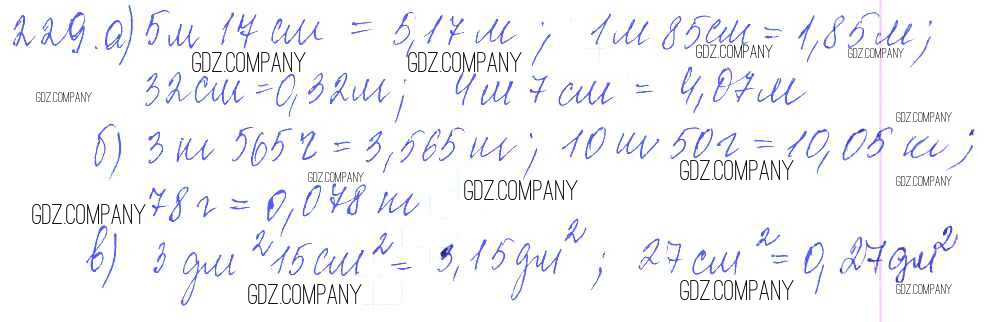 229. а) 5м 17 см = 5,17 м ; 1м 85см = 1,85 м ;
GDZ.COMPANY GDZ.COMPANY GDZ.COMPANY
32 см = 0,32 м ; 4 м 7 см = 4,07 м
GDZ.COMPANY GDZ.COMPANY
б) 3 т 565 г = 3,565 т ; 10 т 50 г = 10,05 т ;
GDZ.COMPANY GDZ.COMPANY GDZ.COMPANY GDZ.COMPANY
78 г = 0,078 т
GDZ.COMPANY
в) 3 дм² 15 см² = 3,15 дм² ; 27 см² = 0,27 дм²
GDZ.COMPANY GDZ.COMPANY GDZ.COMPANY